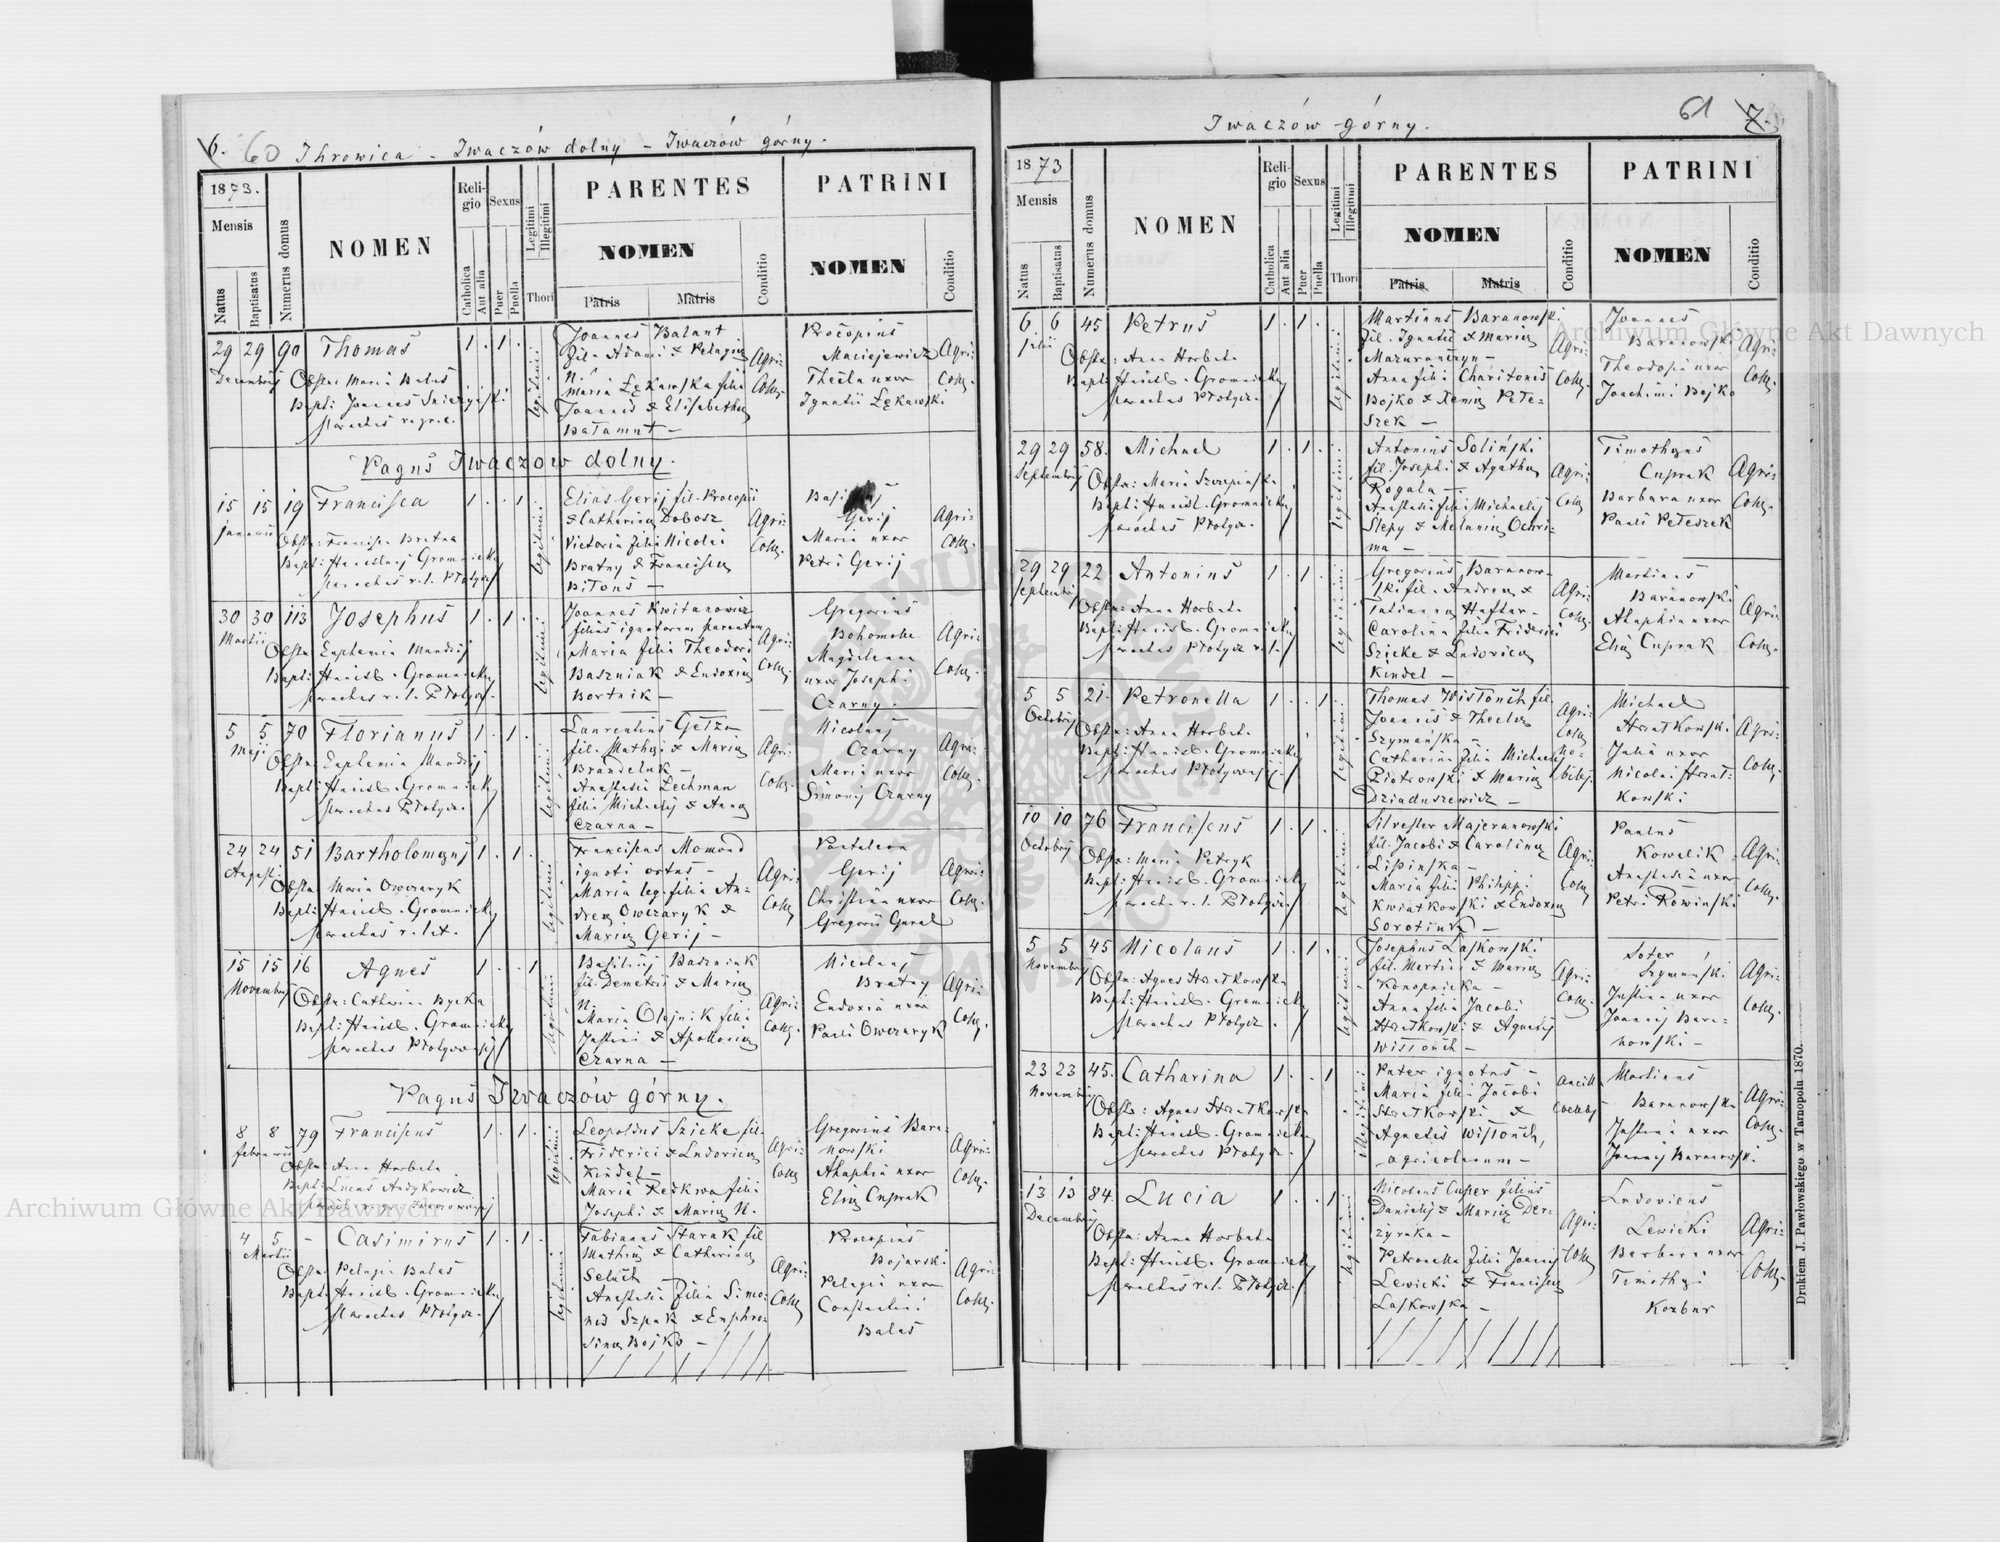 6. 60 Ihrowica - Iwaczów dolny - Iwaczów górny.
1873.
Mensis
Natus
Baptisatus
Numerus domus
NOMEN
Religio
Catholica
Aut alia
Sexus
Puer
Puella
Legitimi
Illegitimi
Thori
PARENTES
NOMEN
Patris
Matris
Conditio
PATRINI
NOMEN
Conditio
29 29 90 Thomas 1 . 1 .
Decembris
Obstx: Maria Balas
Bapt: Joannes
legitimi
Joannes Balant
fil. Adami & Pelagiæ
N.
Maria Łękawska filia
Joannis & Elisabethæ
Bałamut —
Agri:
Colæ.
Procopius
Maciejewicz
Thecla uxor
Ignatii Łękawski
Agri:
Colæ.
Pagus Iwaczow dolny.
15 15 19 Francisca 1 . . 1
Januarii
Obstx: Francisca Bratna
Bapt: Stanislaus Gromnicki
parochus r. l. Płotycz.
legitimi
Elias Gerij fil. Procopii
& Catharinæ Dobosz
Victoria filia Nicolai
Bratny & Franciscæ
Biłous —
Agri:
Colæ.
Gerij
Maria uxor
Petri Gerij
Agri:
Colæ.
30 30 113 Josephus 1 . 1 .
Martii
Obstx: Euphemia Mandzij
Bapt: Stanisl. Gromnicki
parochus r. l. Płotycz.
legitimi
Joannes Kwitanowicz
filius ignotorum parentum
Maria filia Theodori
Baszniak & Eudoxiæ
Bortnik —
Agri:
Colæ.
Gregorius
Magdalena
uxor Joseph.
Czarny.
Agri:
Colæ.
5 5 70 Florianus 1 . 1 .
Maji
Obstx: Euphemia Mandzij
Bapt: Stanisl. Gromnicki
parochus Płotycz.
legitimi
Laurentius Getza
fil. Mathæi & Mariæ
Anastasia Lechman
filia Michaelis & Annæ
Czarna —
Agri:
Colæ.
Nicolaus
Czarny
Maria uxor
Simonis Czarny
Agri:
Colæ.
24 24 51 Bartholomæus 1 . 1 .
Augusti
Obstx: Maria Owczaryk
Bapt: Stanisl. Gromnicki
legitimi
Franciscus Momond
ignoti ortus —
Maria leg. filia An-
dreæ Owczaryk &
Mariæ Gerij —
Agri:
Colæ
Panteleon
Gerij
Christina uxor
Gregorii Gural
Agri:
Colæ.
15 15 16 Agnes 1 . . 1
Novembris
Obstx: Catharina
Bapt: Stanisl. Gromnicki
parochus Płotycz
legitimi
Basilius Baszniak
fil. Demetrii & Mariæ
N.
Maria Olejnik filia
Justini & Apolloniæ
Czarna —
Agri:
Colæ.
Nicolaus
Bratny
Eudoxia uxor
Pauli Owczaryk
Agri:
Colæ.
Pagus Iwaczów górny.
8 8 79 Franciscus 1 . 1 .
februarii
Obstx: Anna Horbata
Bapt: Lucas
legitimi
Leopoldus Szicke fil.
Friderici & Ludovicæ
Kindel —
Maria Redkwa filia
Josephi & Mariæ N.
Agri:
Colæ
Gregorius Bara-
nowski
Ahaphia uxor
Eliæ Cuprak
Agri:
Colæ.
4 5 - Casimirus 1 . 1 .
Martii
Obstx: Pelagia Balas
Bapt: Stanisl. Gromnicki
parochus Płotycz.
legitimi
Fabianus Starak fil
Mathiæ & Catharinæ
Seluch —
Anastasia filia Simo-
nis Szpak & Euphro-
sinæ Bojko —
Agri:
Colæ
Procopius
Bojarski
Pelagia uxor
Constantini
Balas
Agri:
Colæ.
Iwaczów górny.
61 7.
1873
Mensis
Natus
Baptisatus
Numerus domus
NOMEN
Religio
Catholica
Aut alia
Sexus
Puer
Puella
Legitimi
Illegitimi
Thori
PARENTES
NOMEN
Patris
Matris
Conditio
PATRINI
NOMEN
Conditio
6 6 45 Petrus 1 . 1 .
Julii
Obstx: Anna Horbata
Bapt: Stanisl. Gromnicki
parochus Płotycz.
legitimi
Martinus Baranowski
fil. Ignatii & Mariæ
Mazuranczyn —
Anna filia Charitonis
Bojko & Xeniæ Pete-
szek —
Agri:
Colæ.
Joannes
Baranowski
Theodosia uxor
Joachimi Bojko
Agri:
Colæ.
29 29 58. Michael 1 . 1 .
Septembris
Obstx: Maria
Bapt: Stanisl. Gromnicki
parochus Płotycz.
legitimi
Antonius Soliński
fil. Josephi & Agathæ
Rogala —
Anastasia filia Michaelis
Slepy & Melaniæ Ochri-
ma —
Agri:
Colæ
Timotheus
Cuprak
Barbara uxor
Pauli Peteszek
Agri:
Colæ.
29 29 22 Antonius 1 . 1 .
Septembris
Obstx: Anna Horbata
Bapt: Stanisl. Gromnicki
parochus Płotycz r. l.
legitimi
Gregorius Baranow-
ski fil. Andreæ &
Tatiannæ Haftar —
Carolina filia Friderici
Szicke & Ludovicæ
Kindel —
Agri:
Colæ.
Martinus
Baranowski
Ahaphia uxor
Eliæ Cuprak
Agri:
Colæ.
5 5 21. Petronella 1 . . 1
Octobris
Obstx: Anna Horbata
Bapt: Stanisl. Gromnicki
parochus Płotycz
legitimi
Thomas Wisłouch fil.
Joannis & Theclæ
Szymańska —
Catharina filia Michaelis
Piotrowski & Mariæ
Dziaduszewicz —
Agri:
Colæ
No-
bilis.
Michael
Strutkowski
Julia uxor
Nicolai Strut-
kowski
Agri:
Colæ.
10 10 76 Franciscus 1 . 1 .
Octobris
Obstx: Maria Petryk
Bapt: Stanisl. Gromnicki
paroch. r. l. Płotycz.
legitimi
Silvester Majeranowski
fil. Jacobi & Carolinæ
Lipinska —
Maria filia Philippi
Kwiatkowski & Eudoxiæ
Sorotiuk —
Agri:
Colæ
Paulus
Kowalik
Anastasia uxor
Petri Rowinski
Agri:
Colæ.
5 5 45 Nicolaus 1 . 1 .
Novembris
Obstx: Agnes Strutkowska
Bapt: Stanisl. Gromnicki
parochus Płotycz.
legitimi
Josephus Laskowski
fil. Martini & Mariæ
Konopnicka —
Anna filia Jacobi
Strutkowski & Agnetis
Wisłouch —
Agri:
Colæ.
Soter
Szymański
Justina uxor
Joannis Bara-
nowski —
Agri:
Colæ.
23 23 45. Catharina 1 . . 1
Novembris
Obstx: Agnes Strutkowska
Bapt: Stanisl. Gromnicki
parochus Płotycz.
illegitimi
Pater ignotus —
Maria filia Jacobi
Strutkowski &
Agnetis Wisłouch,
agricolarum —
Ancilla
Martinus
Baranowski
Justina uxor
Joannis Baranowski
Agri:
Colæ.
13 13 84. Lucia 1 . . 1
Decembris
Obstx: Anna Horbata
Bapt: Stanisl. Gromnicki
parochus r. l. Płotycz.
legitimi
Nicolaus Cuper filius
Danielis & Mariæ Der-
żyraka —
Petronella filia Joannis
Lewicki & Franciscæ
Laskowska —
Agri:
Colæ
Ludovicus
Lewicki
Barbara uxor
Timothei
Kozbur
Agri:
Colæ.
Drukiem J. Pawłowskiego w Tarnopolu 1870.
Archiwum Główne Akt Dawnych
Archiwum Główne Akt Dawnych